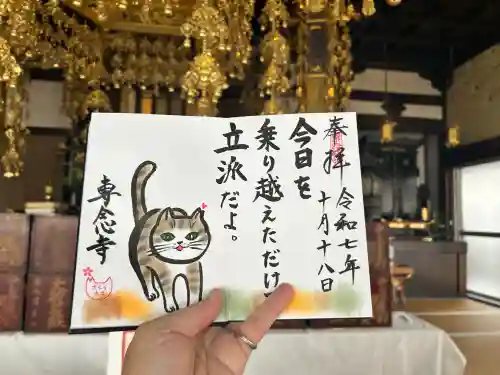 奉拝
令和七年
十月十八日
今日を
乗り越えただけで
立派だよ。
専念寺